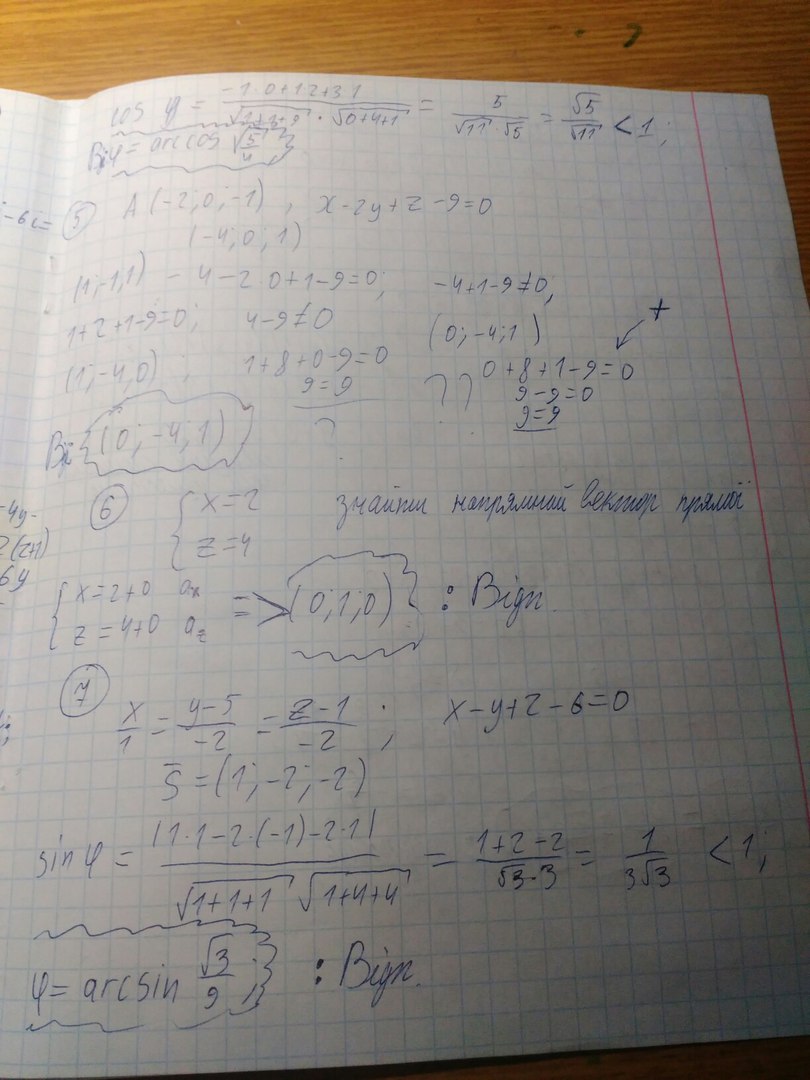 cos φ = (-1·0+1·2+3·1)/(√1+1+9 · √0+4+1) = 5/(√11·√5) = √5/√11 < 1;
Ві: φ = arccos
5 A (-2; 0; -1), x-2y+z-9=0
(-4; 0; 1)
(1; -1; 1) -4-2·0+1-9=0; -4+1-9≠0;
1+2+1-9=0; 4-9≠0 (0; -4; 1) +
(1; -4; 0); 1+8+0-9=0 ?? 0+8+1-9=0
9=9 9-9=0
? 9=9
Ві: (0; -4; 1)
6 { x=2 знайти напрямний вектор прямої
z=4
{ x=2+0 aₓ => (0; 1; 0) : Відп.
z=4+0 a_z
7
x/1 = (y-5)/-2 = (z-1)/-2 ; x-y+z-6=0
S̄ = (1; -2; -2)
sin φ = |1·1-2·(-1)-2·1|/(√1+1+1 √1+4+4) = (1+2-2)/(√3·3) = 1/(3√3) < 1;
φ = arcsin √3/9 : Відп.